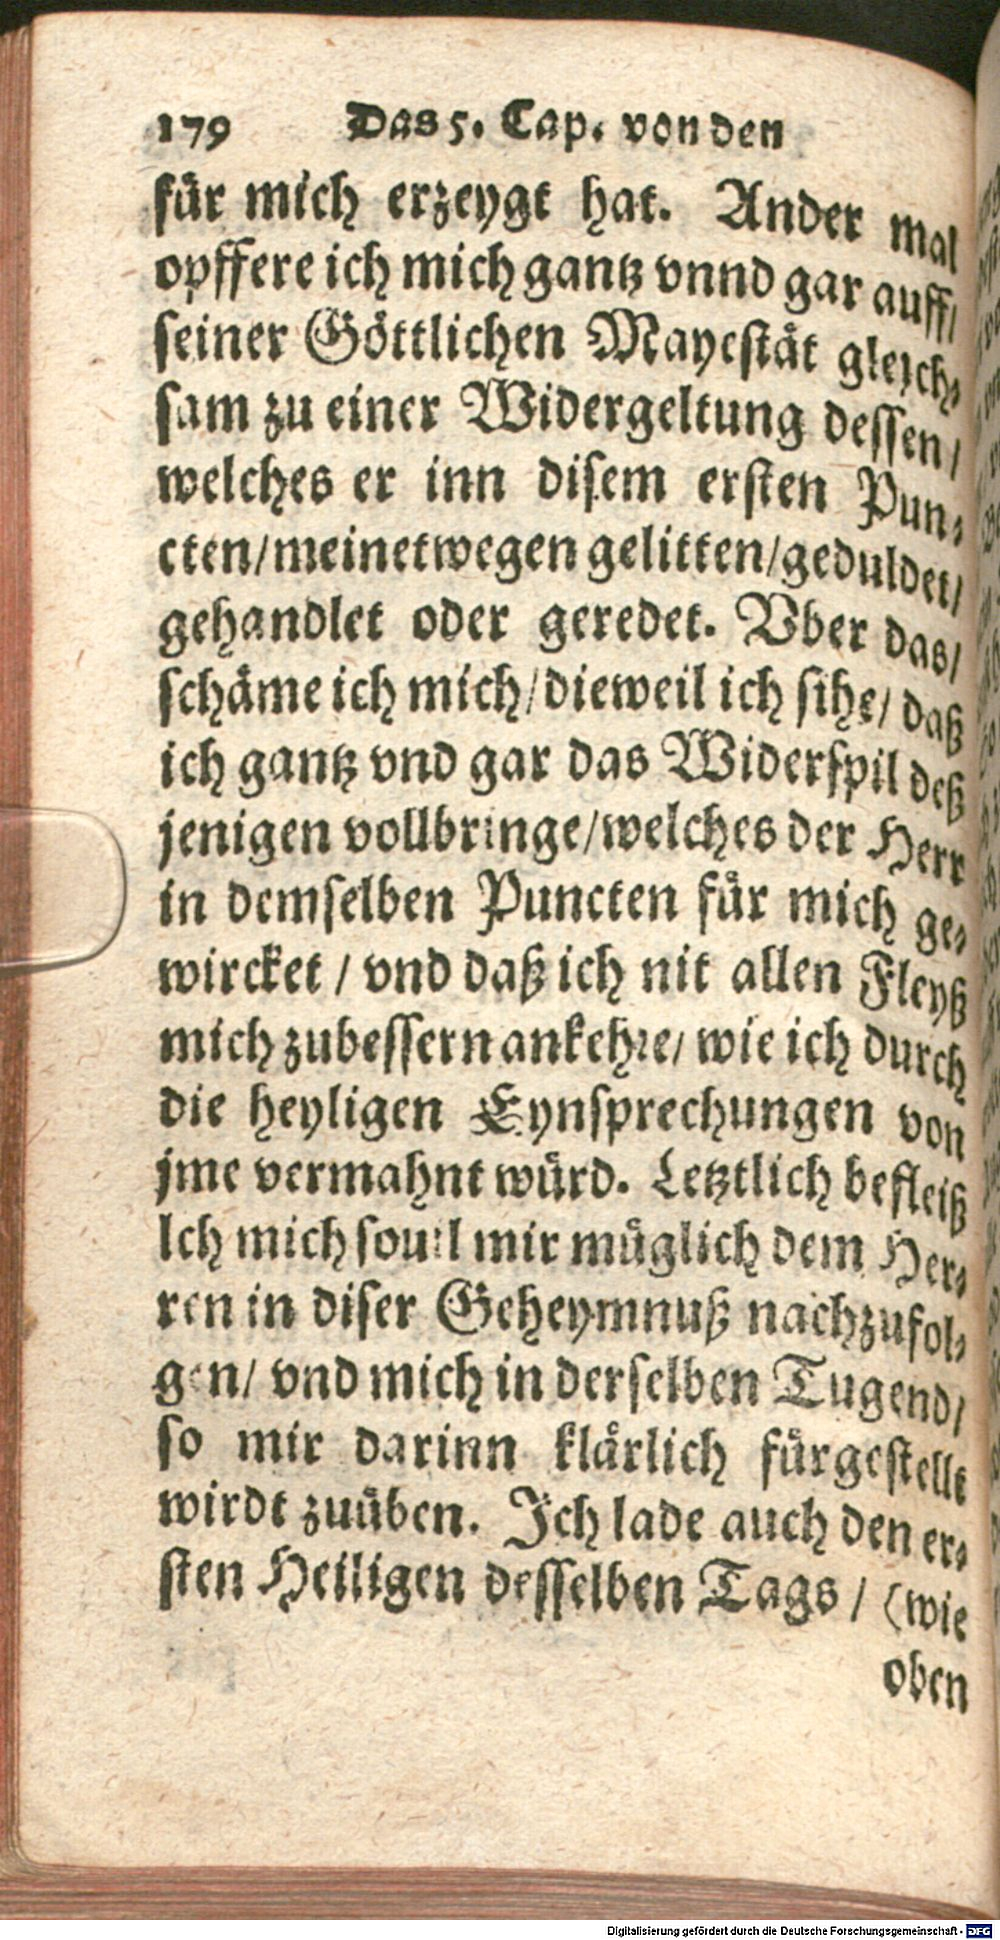 179 Das 5. Cap. von den
für mich erzeygt hat. Ander mal
opffere ich mich gantz vnnd gar auff/
seiner Göttlichen Mayestät gleich⸗
sam zu einer Widergeltung dessen/
welches er inn disem ersten Pun⸗
cten/meinetwegen gelitten/geduldet/
gehandlet oder geredet. Vber das/
schäme ich mich/dieweil ich sihe/ daß
ich gantz vnd gar das Widerspil deß
jenigen vollbringe/welches der Herr
in demselben Puncten für mich ge⸗
wircket / vnd daß ich nit allen Fleyß
mich zubessern ankehre/ wie ich durch
die heyligen Eynsprechungen von
jme vermahnt würd. Letztlich befleiß
Ich mich souil mir müglich dem Her⸗
ren in diser Geheymnuß nachzufol⸗
gen/ vnd mich in derselben Tugend/
so mir darinn klärlich fürgestellt
wirdt zuüben. Ich lade auch den er⸗
sten Heiligen desselben Tags / (wie
oben
Digitalisierung gefördert durch die Deutsche Forschungsgemeinschaft - DFG